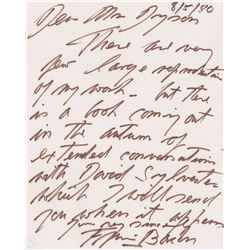 8/5/80
Dear Mr Dyson
There are very
few large reproductions
of my work - but there
is a book coming out
in the autumn of
extended conversation
with David Sylvester
which I will send
you when it appears
yours sincerely
Francis Bacon